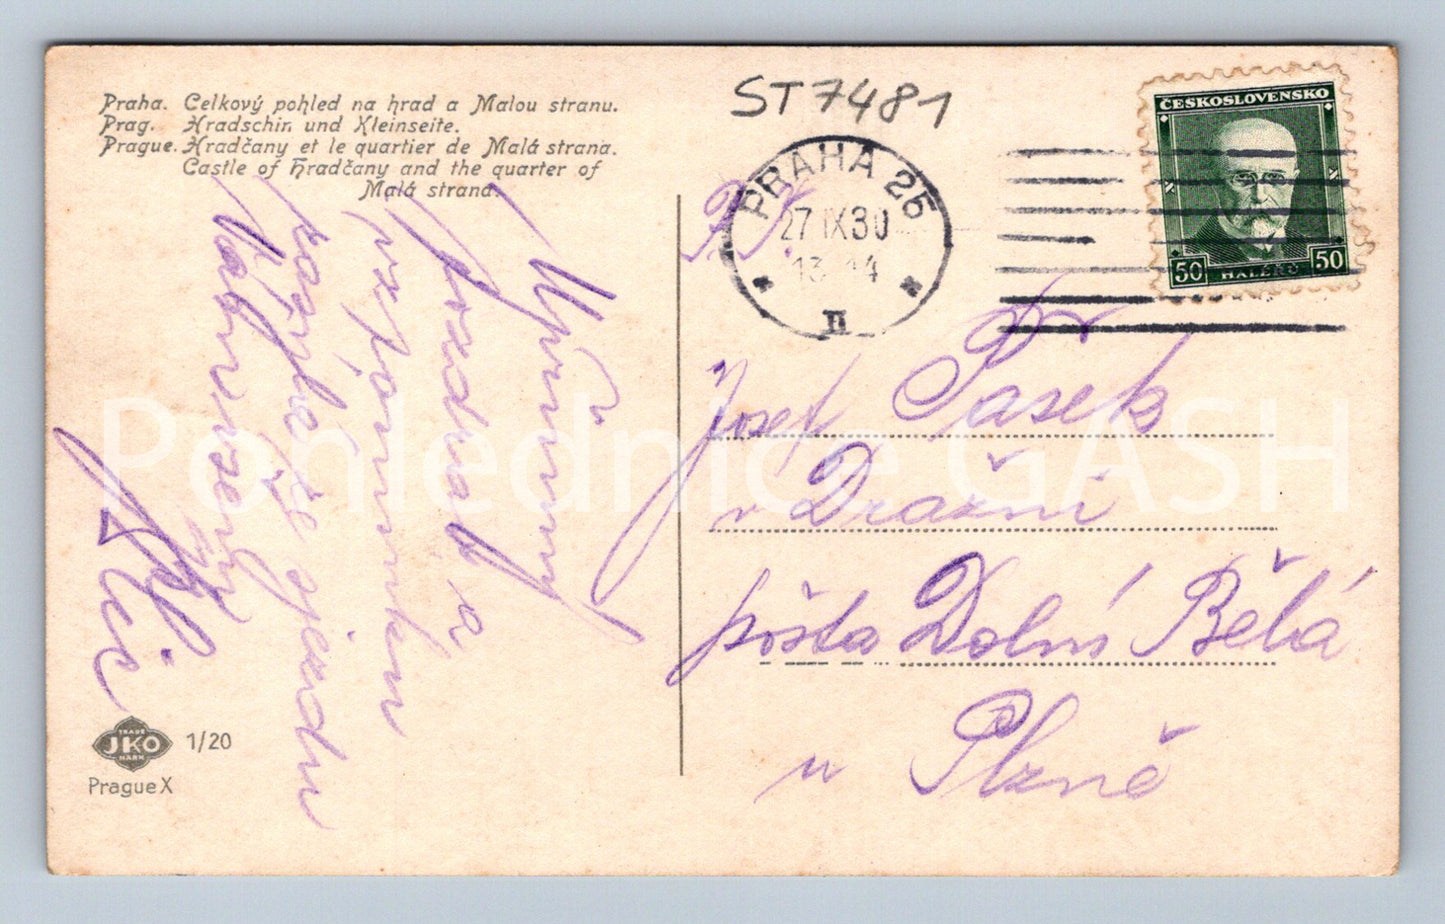 Praha. Celkový pohled na hrad a Malou stranu.
Prag. Hradschin und Kleinseite.
Prague. Hradčany et le quartier de Malá strana.
Castle of Hradčany and the quarter of
Malá strana.
ST7481
PRAHA 25
27 IX 30
13 14
II
ČESKOSLOVENSKO
50 HALÉŘŮ 50
P.T.
Josef Pašek
v Dražni
pošta Dolní Bělá
u Plzně
Upřímný
pozdrav a
vzpomínku
ze sjezdu
TRADE
JKO
MARK
1/20
Prague X
Pohlednice GASH